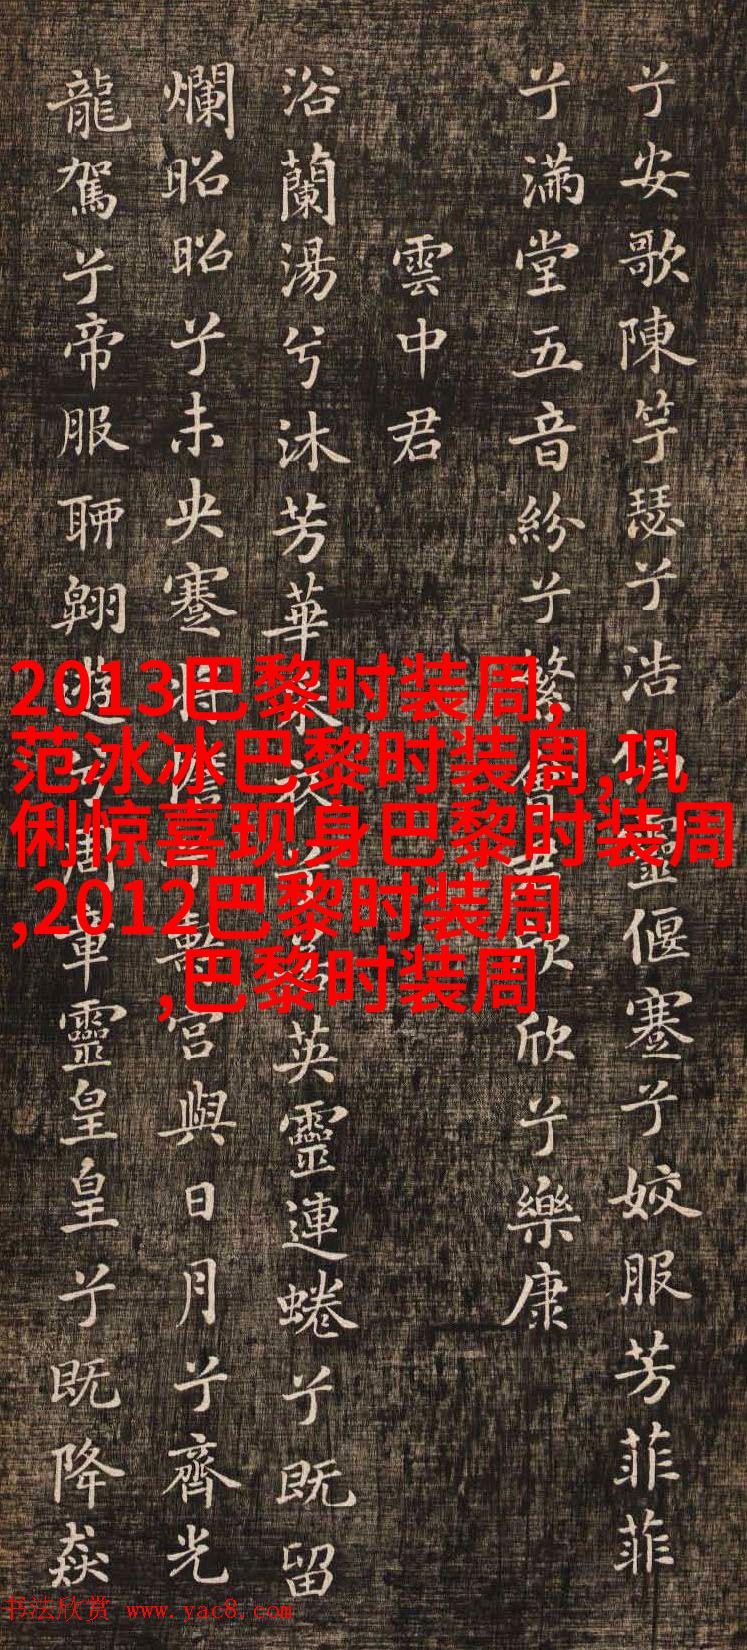 兮安歌陳竽瑟兮浩倡靈偃蹇兮姣服芳菲菲
兮滿堂五音紛兮繁會君欣欣兮樂康
雲中君
浴蘭湯兮沐芳華采衣兮若英靈連蜷兮既留
爛昭昭兮未央蹇將憺兮壽宮與日月兮齊光
龍駕兮帝服聊翱遊兮周章靈皇皇兮既降猋
2013巴黎时装周,
范冰冰巴黎时装周,巩
俐惊喜现身巴黎时装周
,2012巴黎时装周
,巴黎时装周
书法欣赏 www.yac8.com